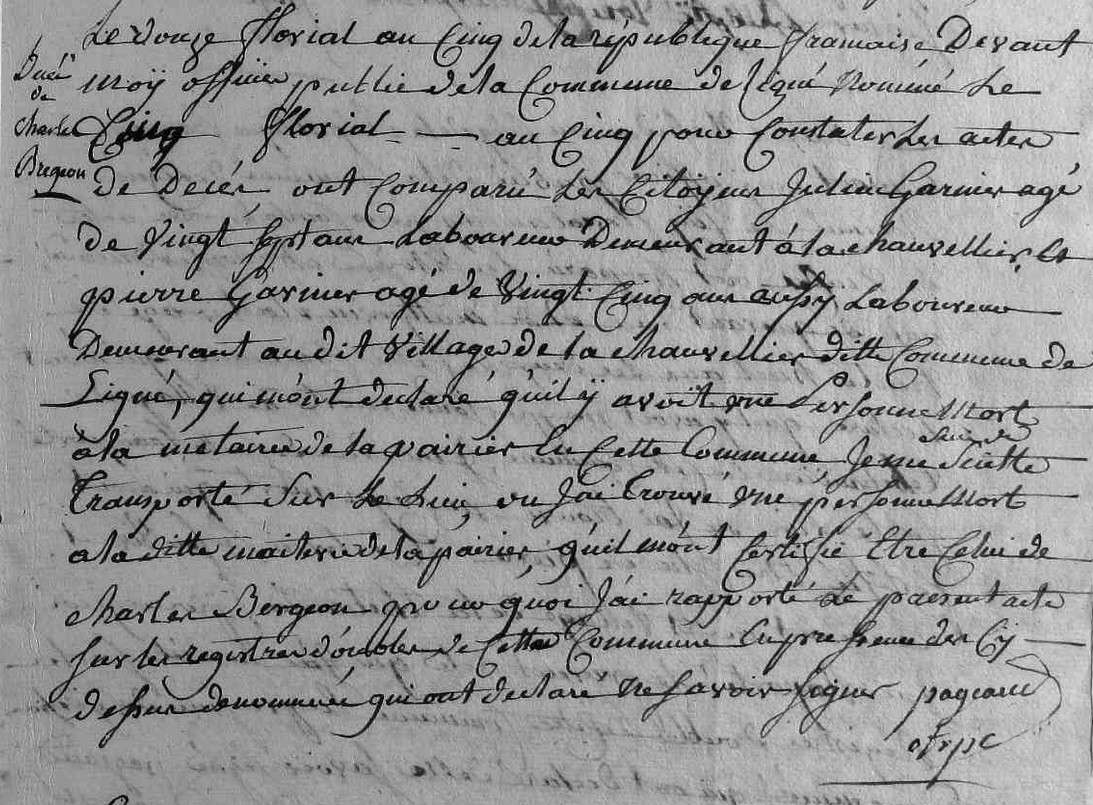 Le Douze florial an Cinq de la république framaise Devant
moÿ officier public de la Commune de Ligné Nommé Le
Cinq florial — an Cinq pour Constater Les actes
de Decés ont Comparu Les Citoyens Julien Garnier agé
de Vingt sept ans Laboureur Demeurant á la chauvellier et
pierre Garnier agé de Vingt Cinq ans aussy Laboureur
Demeurant au dit Village de la chauvellier ditte Commune de
Ligné, qui m'ont declaré qu'il ÿ avoit une Personne Mort
á la metairie de la pairier En Cette Commune Je me Suis de Suitte
Transporté Sur Le Lieu ou J'ai trouvé une personne Mort
a la ditte maiterie de la pairier, qu'il m'ont Certifié Etre Celui de
charles Bergeon pour quoi J'ai rapporté le present acte
sur les registres doubles de Cette Commune En pressence des Cy
dessus denommée qui ont declaré Ne savoir signer pageaud
ofrpc
Decé
de
charles
Bregeon